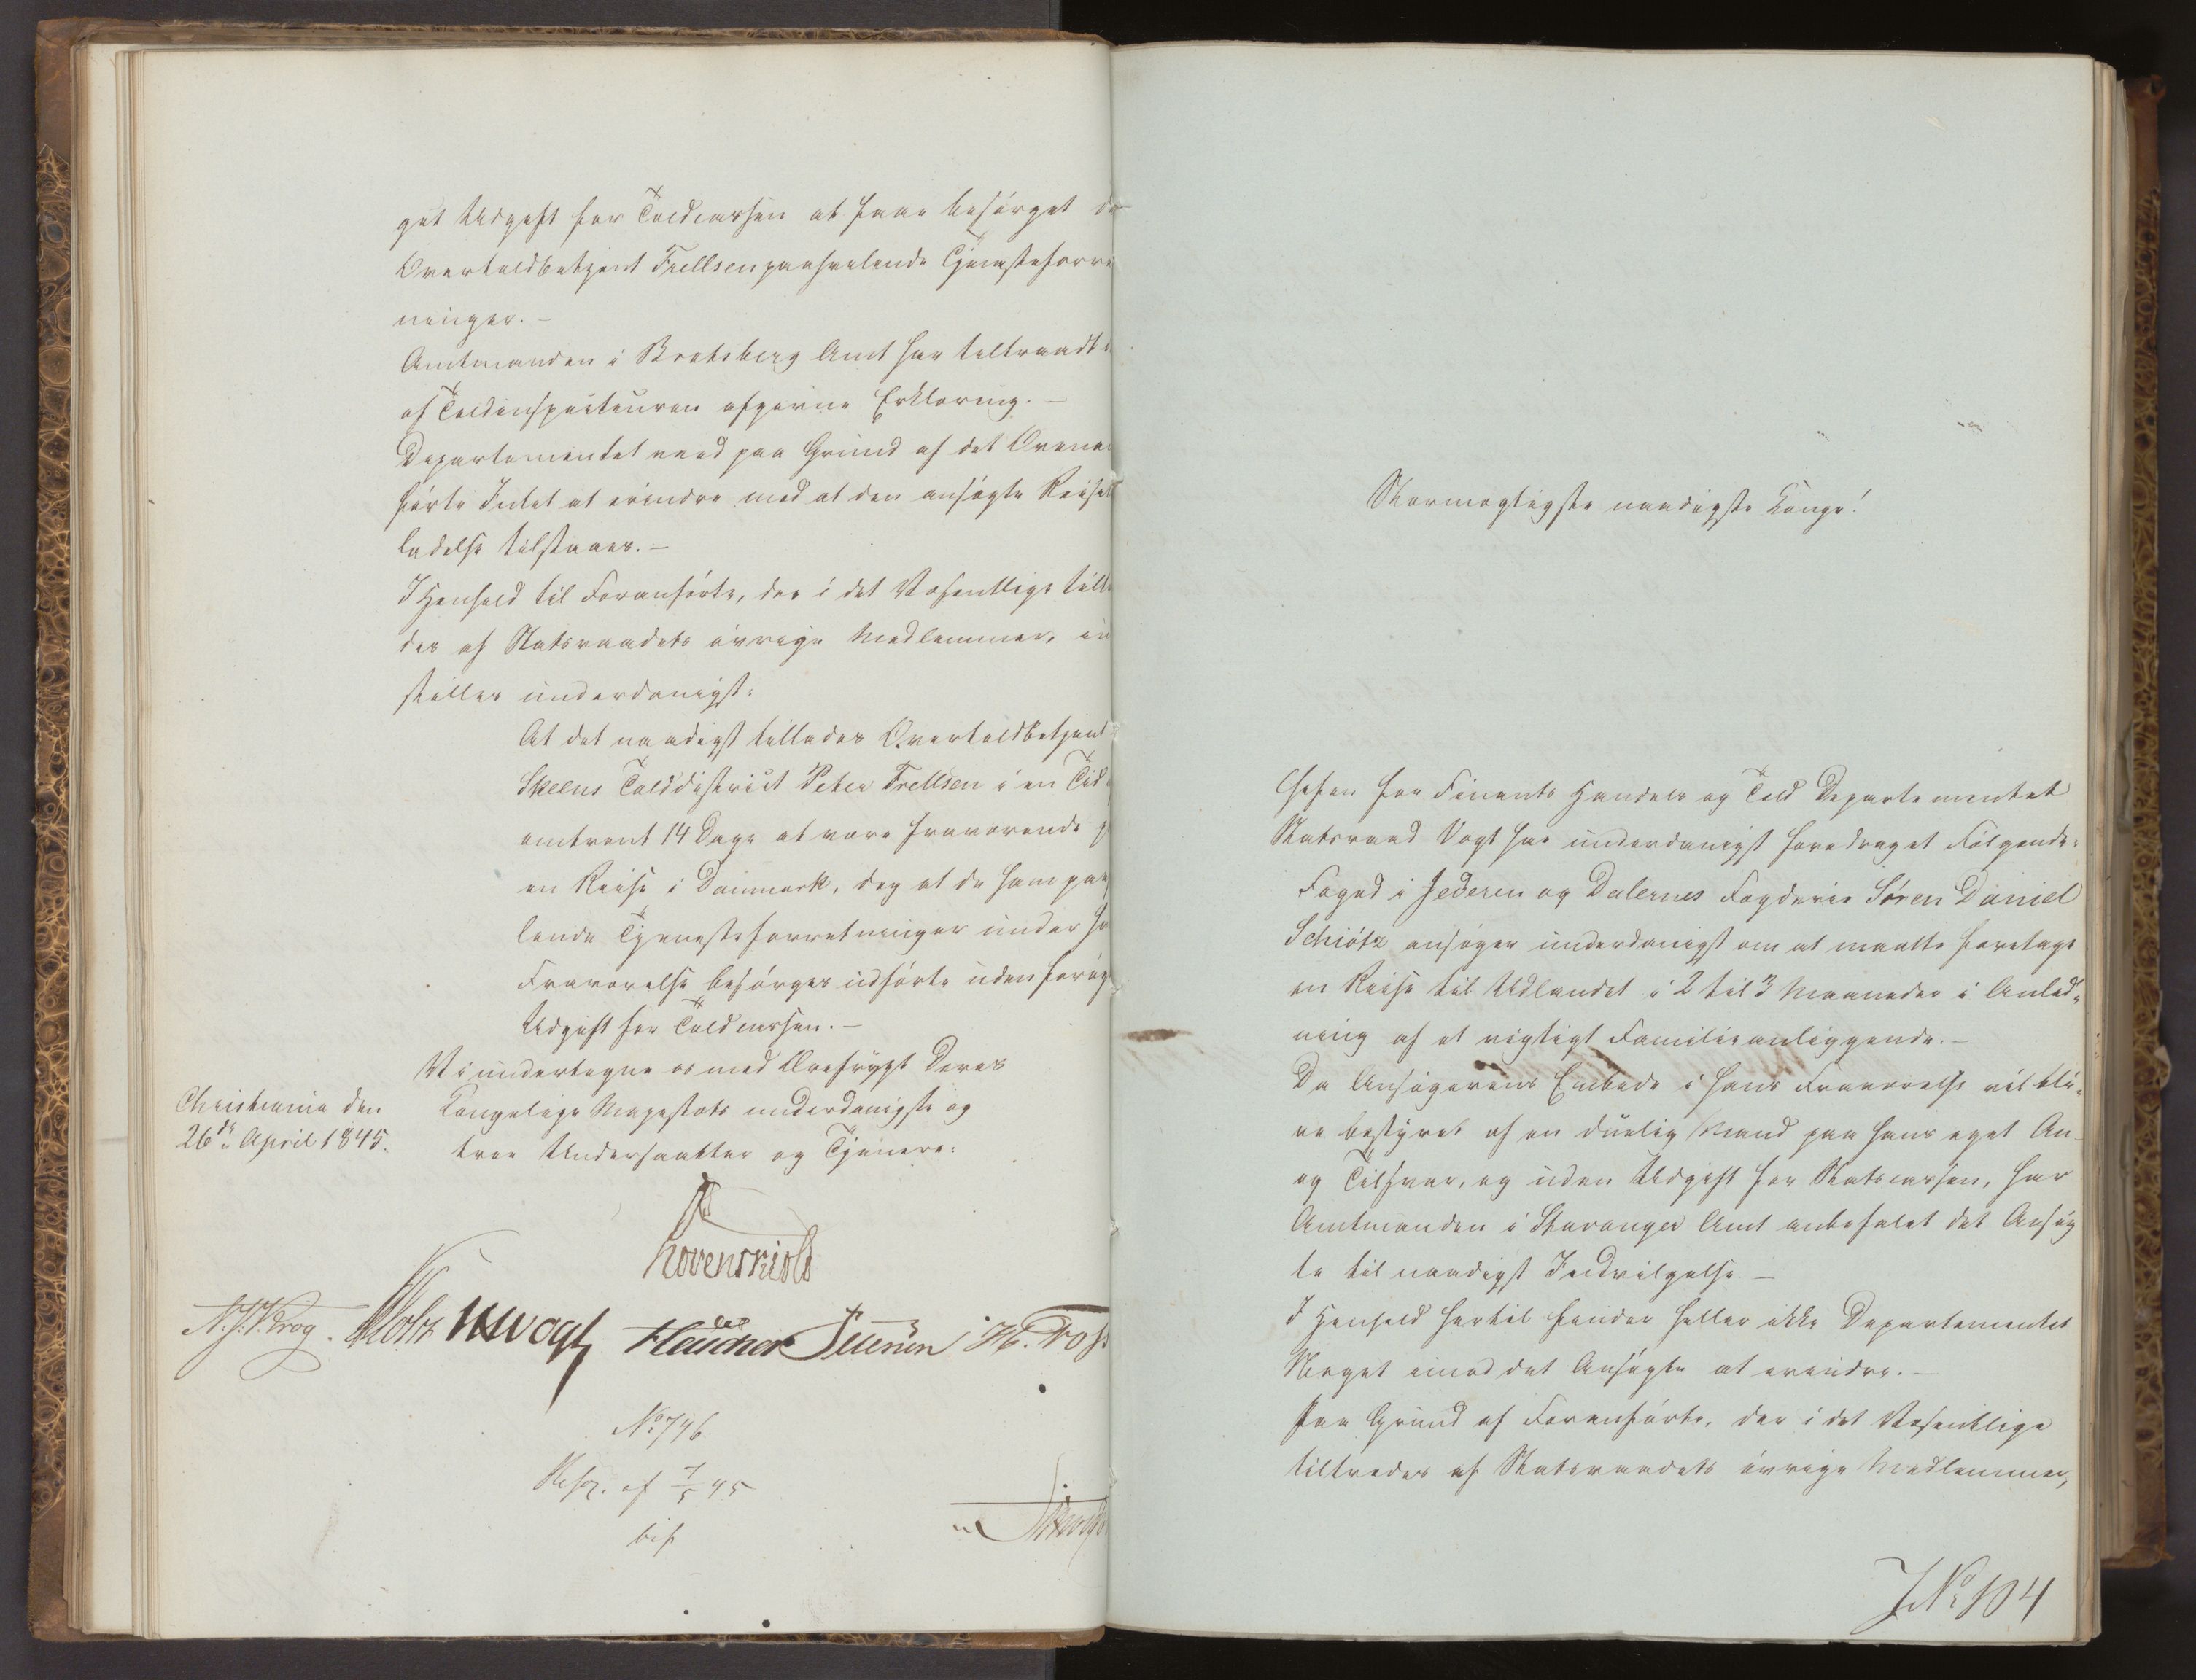 get Udgift for Toldcassen at faae besørget de
Overtoldbetjent Frellsen paahvilende Tjenesteforre
ninger. —
Amtmanden i Bratsberg Amt har tiltraadt d
af Toldinspecteuren afgivne Erklæring. —
Departementet veed paa Grund af det Ovenan
førte Intet at erindre mod at den ansøgte Reisetil
ladelse tilstaaes. —
I Henhold til Foranførte, der i det Væsentlige tiltræ
des af Statsraadets øvrige Medlemmer, in
stilles underdanigst:
At det naadigst tillades Overtoldbetjent i
Skeens Tolddistrict Peter Frellsen i en Tid a
omtrent 14 Dage at være fraværende p
en Reise i Danmark, dog at de ham paahvi
lende Tjenesteforretninger under ha
Fraværelse besørges udførte uden forøg
Udgift for Toldcassen. —
Vi undertegne os med Ærefrygt Deres
Kongelige Majestæts underdanigste og
troe Undersaatter og Tjenere:
Christiania den
26de April 1845.
Løvenskiold
N. J. Krog. Motz JHVogt Hauchar Petersen H. Foss
No 746
Resol. af 7/5 45
bif.
Stormægtigste naadigste Konge!
Chefen for Finants Handels og Told Departementet
Statsraad Vogt har underdanigst foredraget Følgende:
Foged i Jederen og Dalernes Fogderie Søren Daniel
Schiötz ansøger underdanigst om at maatte foretage
en Reise til Udlandet i 2 til 3 Maaneder i Anled„
ning af et vigtigt Familieanliggende. —
Da Ansøgerens Embede i hans Fraværelse vil bli„
ve bestyret af en duelig Mand paa hans eget An-
og Tilsvar, og uden Udgift for Statscassen, har
Amtmanden i Stavanger Amt anbefalet det Ansøg
te til naadigst Indvilgelse. —
I Henhold hertil finder heller ikke Departementet
Noget imod det Ansøgte at erindre. —
Paa Grund af Foranførte, der i det Væsentlige
tiltrædes af Statsraadets øvrige Medlemmer,
JNo 104